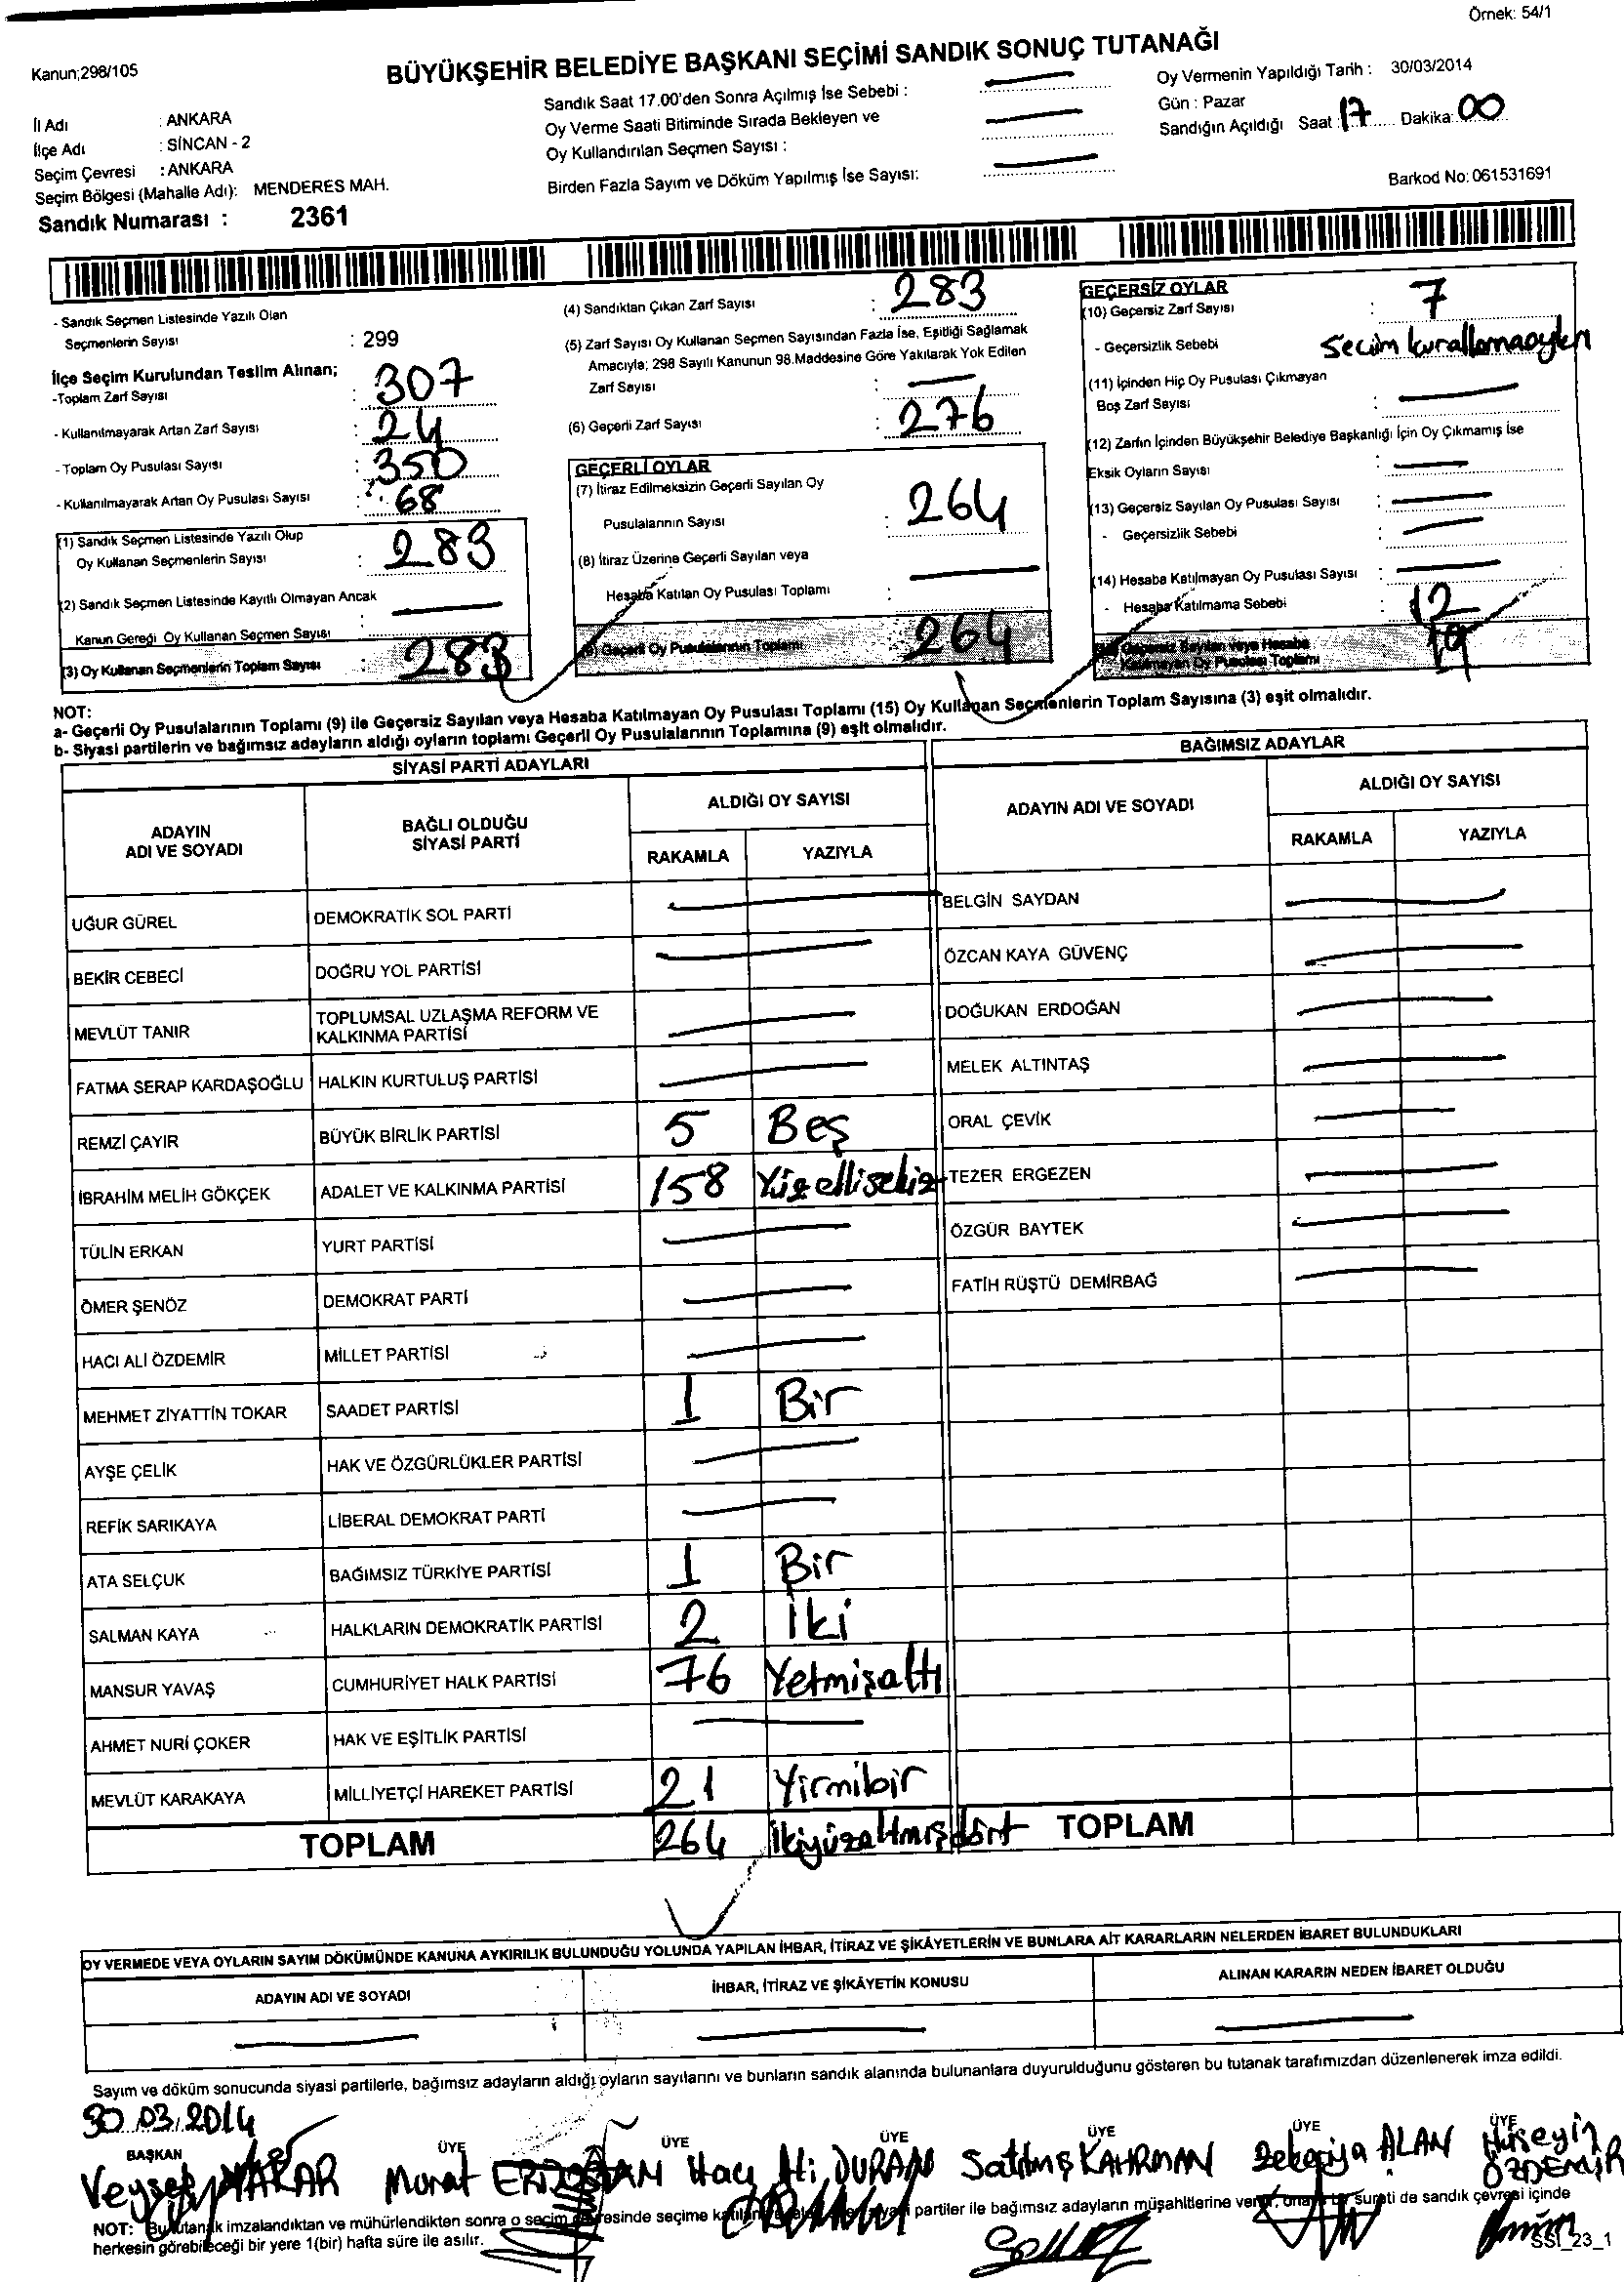 Örnek: 54/1
Kanun;298/105
BÜYÜKŞEHİR BELEDİYE BAŞKANI SEÇİMİ SANDIK SONUÇ TUTANAĞI
İl Adı : ANKARA
İlçe Adı : SİNCAN - 2
Seçim Çevresi : ANKARA
Seçim Bölgesi (Mahalle Adı): MENDERES MAH.
Sandık Numarası : 2361
Sandık Saat 17.00'den Sonra Açılmış İse Sebebi :
Oy Verme Saati Bitiminde Sırada Bekleyen ve
Oy Kullandırılan Seçmen Sayısı :
Birden Fazla Sayım ve Döküm Yapılmış İse Sayısı:
Oy Vermenin Yapıldığı Tarih : 30/03/2014
Gün : Pazar
Sandığın Açıldığı Saat : 17 Dakika: 00
Barkod No: 061531691
- Sandık Seçmen Listesinde Yazılı Olan
Seçmenlerin Sayısı : 299
İlçe Seçim Kurulundan Teslim Alınan;
-Toplam Zarf Sayısı : 307
- Kullanılmayarak Artan Zarf Sayısı : 24
- Toplam Oy Pusulası Sayısı : 350
- Kullanılmayarak Artan Oy Pusulası Sayısı : 68
(1) Sandık Seçmen Listesinde Yazılı Olup
Oy Kullanan Seçmenlerin Sayısı : 283
(2) Sandık Seçmen Listesinde Kayıtlı Olmayan Ancak
Kanun Gereği Oy Kullanan Seçmen Sayısı :
(3) Oy Kullanan Seçmenlerin Toplam Sayısı : 283
(4) Sandıktan Çıkan Zarf Sayısı : 283
(5) Zarf Sayısı Oy Kullanan Seçmen Sayısından Fazla İse, Eşitliği Sağlamak
Amacıyla; 298 Sayılı Kanunun 98.Maddesine Göre Yakılarak Yok Edilen
Zarf Sayısı :
(6) Geçerli Zarf Sayısı : 276
GEÇERLİ OYLAR
(7) İtiraz Edilmeksizin Geçerli Sayılan Oy
Pusulalarının Sayısı : 264
(8) İtiraz Üzerine Geçerli Sayılan veya
Hesaba Katılan Oy Pusulası Toplamı :
(9) Geçerli Oy Pusulalarının Toplamı : 264
GEÇERSİZ OYLAR
(10) Geçersiz Zarf Sayısı : 7
- Geçersizlik Sebebi : Secim
(11) İçinden Hiç Oy Pusulası Çıkmayan
Boş Zarf Sayısı :
(12) Zarfın İçinden Büyükşehir Belediye Başkanlığı İçin Oy Çıkmamış İse
Eksik Oyların Sayısı :
(13) Geçersiz Sayılan Oy Pusulası Sayısı :
- Geçersizlik Sebebi :
(14) Hesaba Katılmayan Oy Pusulası Sayısı :
- Hesaba Katılmama Sebebi : 12
(15) Geçersiz Sayılan veya Hesaba
Katılmayan Oy Pusulası Toplamı 19
NOT:
a- Geçerli Oy Pusulalarının Toplamı (9) ile Geçersiz Sayılan veya Hesaba Katılmayan Oy Pusulası Toplamı (15) Oy Kullanan Seçmenlerin Toplam Sayısına (3) eşit olmalıdır.
b- Siyasi partilerin ve bağımsız adayların aldığı oyların toplamı Geçerli Oy Pusulalarının Toplamına (9) eşit olmalıdır.
SİYASİ PARTİ ADAYLARI
ADAYIN ADI VE SOYADI BAĞLI OLDUĞU SİYASİ PARTİ ALDIĞI OY SAYISI
RAKAMLA YAZIYLA
UĞUR GÜREL DEMOKRATİK SOL PARTİ
BEKİR CEBECİ DOĞRU YOL PARTİSİ
MEVLÜT TANIR TOPLUMSAL UZLAŞMA REFORM VE KALKINMA PARTİSİ
FATMA SERAP KARDAŞOĞLU HALKIN KURTULUŞ PARTİSİ
REMZİ ÇAYIR BÜYÜK BİRLİK PARTİSİ 5 Beş
İBRAHİM MELİH GÖKÇEK ADALET VE KALKINMA PARTİSİ 158 Yüzellisekiz
TÜLİN ERKAN YURT PARTİSİ
ÖMER ŞENÖZ DEMOKRAT PARTİ
HACI ALİ ÖZDEMİR MİLLET PARTİSİ
MEHMET ZİYATTİN TOKAR SAADET PARTİSİ 1 Bir
AYŞE ÇELİK HAK VE ÖZGÜRLÜKLER PARTİSİ
REFİK SARIKAYA LİBERAL DEMOKRAT PARTİ
ATA SELÇUK BAĞIMSIZ TÜRKİYE PARTİSİ 1 Bir
SALMAN KAYA HALKLARIN DEMOKRATİK PARTİSİ 2 İki
MANSUR YAVAŞ CUMHURİYET HALK PARTİSİ 76 Yetmişaltı
AHMET NURİ ÇOKER HAK VE EŞİTLİK PARTİSİ
MEVLÜT KARAKAYA MİLLİYETÇİ HAREKET PARTİSİ 21 Yirmibir
TOPLAM 264 İkiyüzaltmışdört
BAĞIMSIZ ADAYLAR
ADAYIN ADI VE SOYADI ALDIĞI OY SAYISI
RAKAMLA YAZIYLA
BELGİN SAYDAN
ÖZCAN KAYA GÜVENÇ
DOĞUKAN ERDOĞAN
MELEK ALTINTAŞ
ORAL ÇEVİK
TEZER ERGEZEN
ÖZGÜR BAYTEK
FATİH RÜŞTÜ DEMİRBAĞ
TOPLAM
OY VERMEDE VEYA OYLARIN SAYIM DÖKÜMÜNDE KANUNA AYKIRILIK BULUNDUĞU YOLUNDA YAPILAN İHBAR, İTİRAZ VE ŞİKÂYETLERİN VE BUNLARA AİT KARARLARIN NELERDEN İBARET BULUNDUKLARI
ADAYIN ADI VE SOYADI İHBAR, İTİRAZ VE ŞİKÂYETİN KONUSU ALINAN KARARIN NEDEN İBARET OLDUĞU
Sayım ve döküm sonucunda siyasi partilerle, bağımsız adayların aldığı oyların sayılarını ve bunların sandık alanında bulunanlara duyurulduğunu gösteren bu tutanak tarafımızdan düzenlenerek imza edildi.
30.03.2014
BAŞKAN ÜYE ÜYE ÜYE ÜYE ÜYE ÜYE
Veysel Murat Hacı Ali DURAN Satılmış KAHRMAN Zekeriya ALAN Hüseyin ÖZDEMİR
NOT: Bu tutanak imzalandıktan ve mühürlendikten sonra o seçim çevresinde seçime katılan siyasi partiler ile bağımsız adayların müşahitlerine verilir. Onaylı bir sureti de sandık çevresi içinde
herkesin görebileceği bir yere 1(bir) hafta süre ile asılır.
SSI_23_1